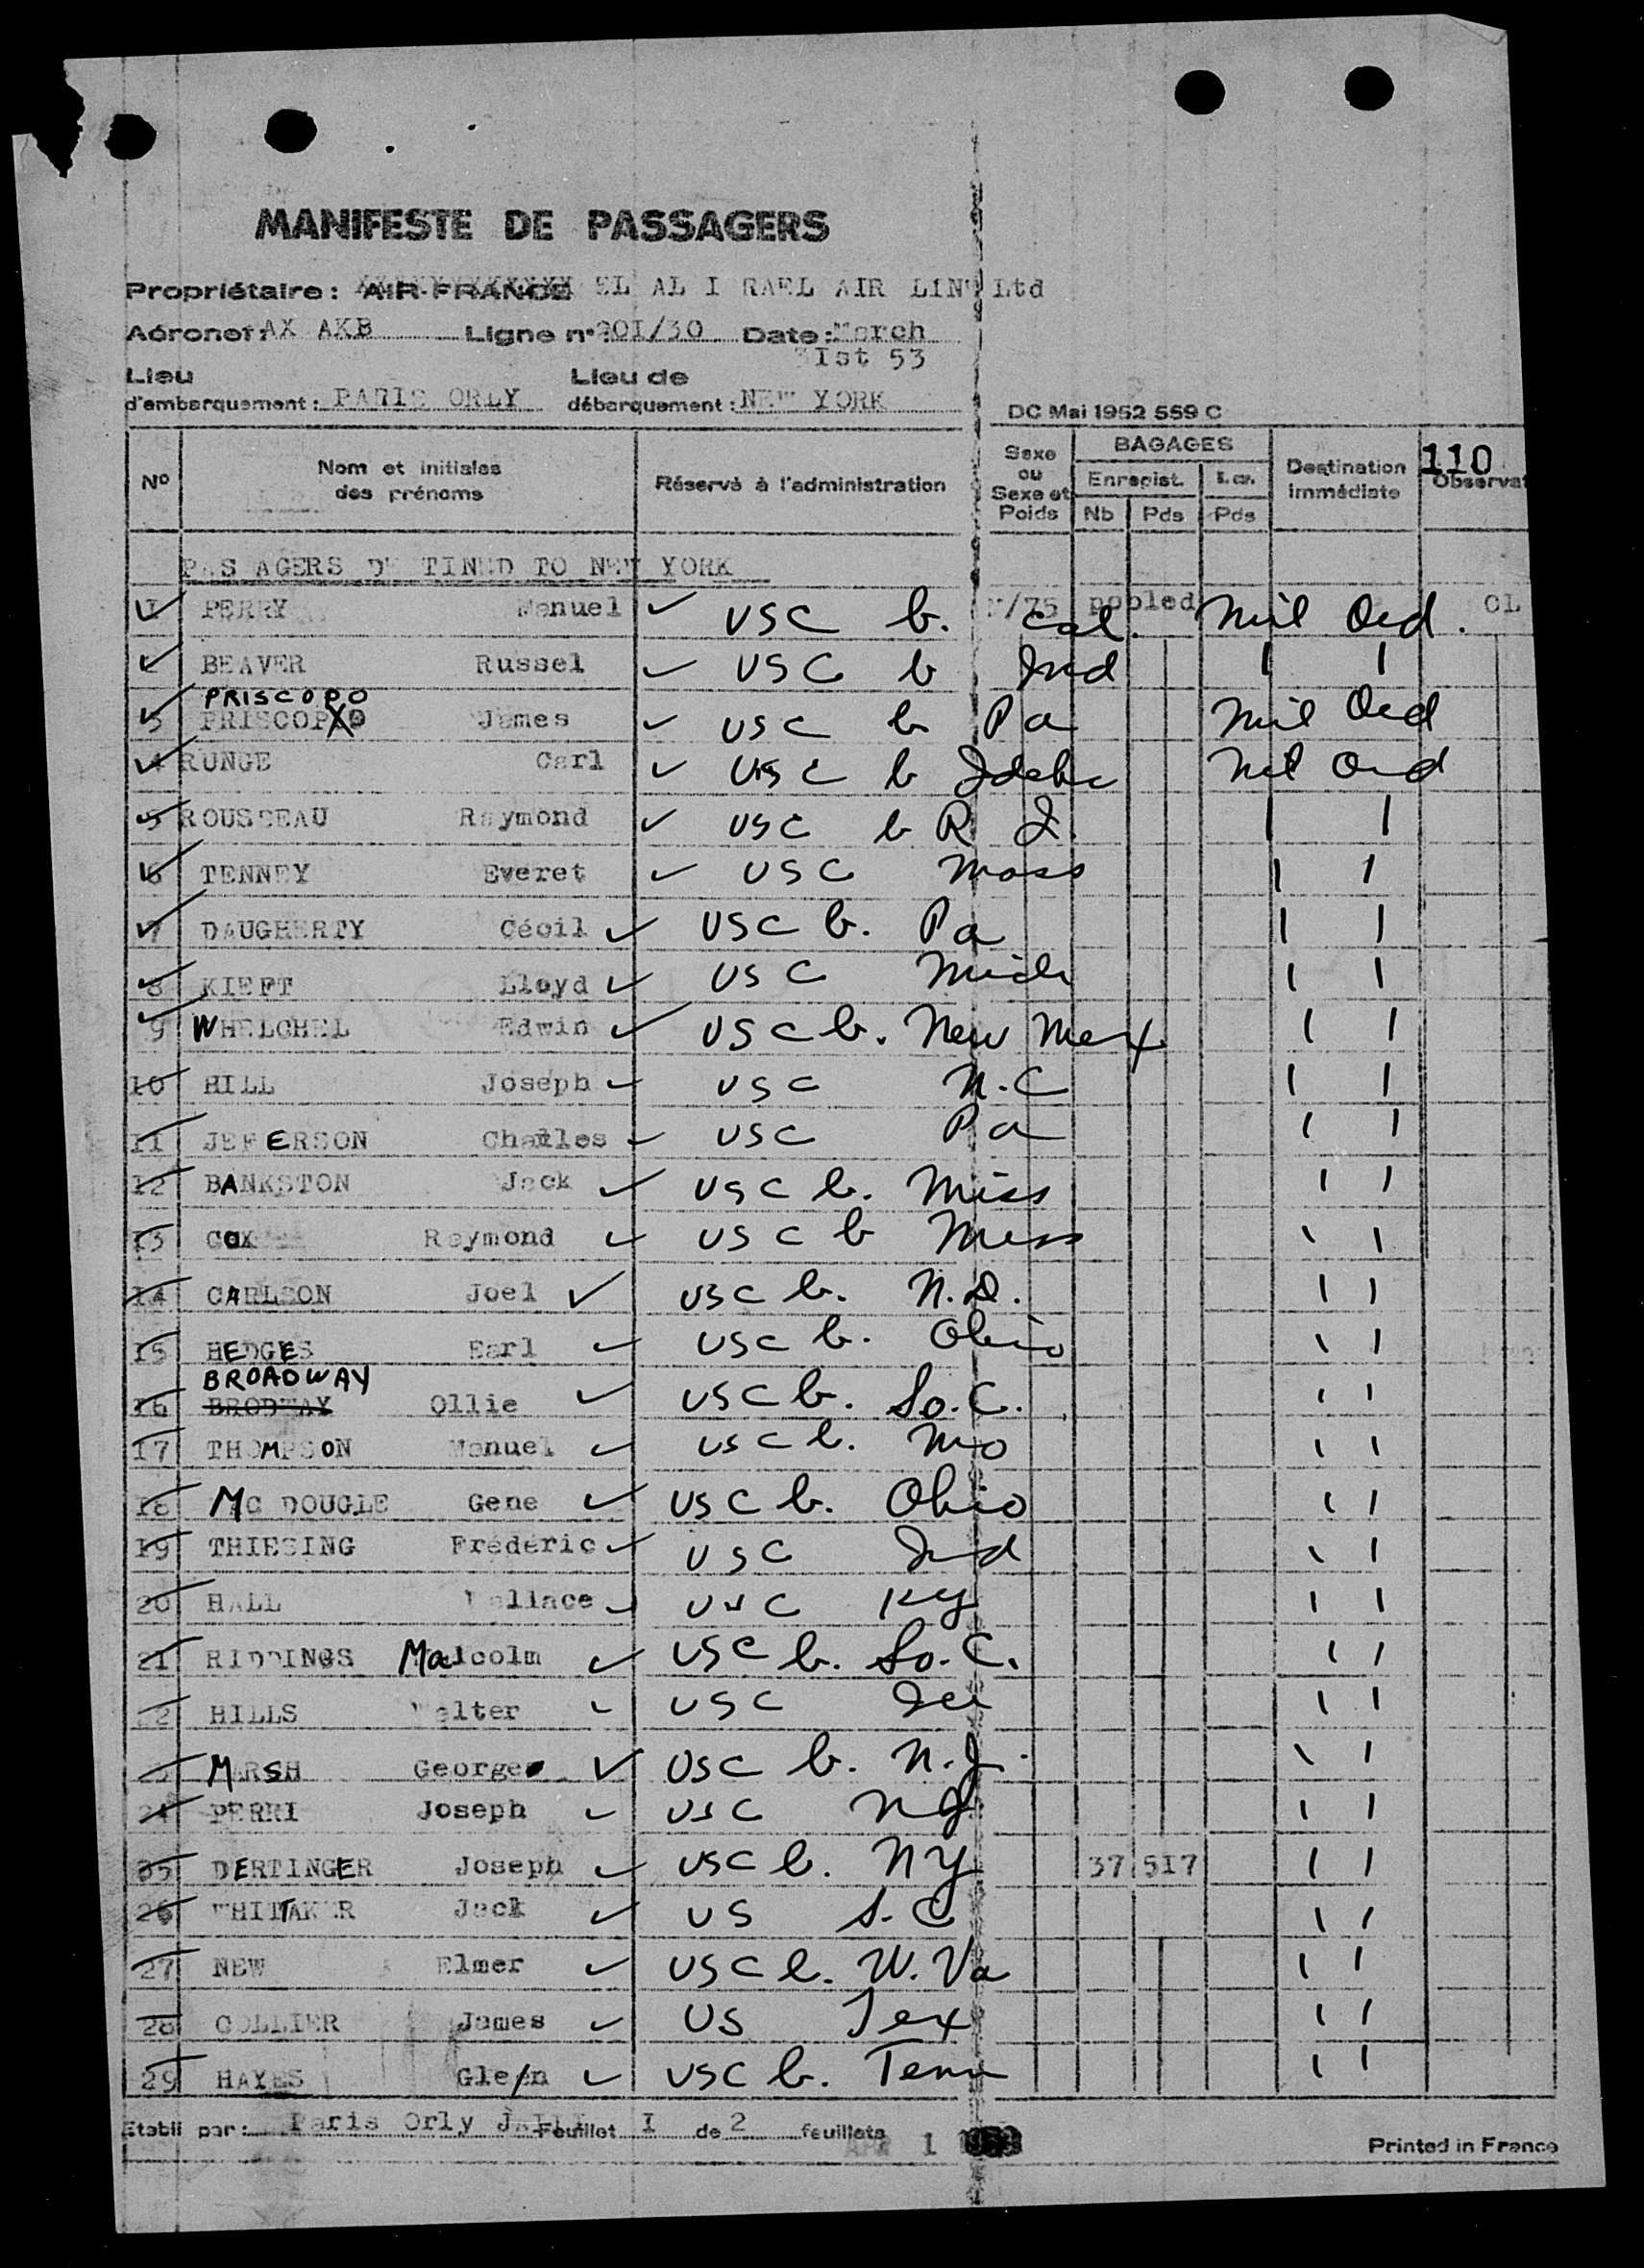 MANIFESTE DE PASSAGERS
Propriétaire: AIR FRANCE EL AL I RAEL AIR LINE Ltd
Aéronef: AX AKB Ligne n° 201/30 Date: March
31st 53
Lieu
d'embarquement: PARIS ORLY
Lieu de
débarquement: NEW YORK
DC Mai 1952 559 C
110
N°
Nom et initiales
des prénoms
Réservé à l'administration
Sexe
ou
Sexe et
Poids
BAGAGES
Enregist.
Nb Pds
Pds
Destination
immédiate
Observat
PAS AGERS DE TINED TO NEW YORK
1 PERRY Manuel USC b. Cal. M/75 pooled Mil Ord. CL
2 BEAVER Russel USC b Ind 1 1
PRISCOPO
3 PRISCOP James USC b Pa Mil Ord
4 RUNGE Carl USC b Idaho Mil Ord
5 ROUSSEAU Raymond USC b R I. 1 1
6 TENNEY Everet USC Mass 1 1
7 DAUGHERTY Cécil USC b. Pa 1 1
8 KIEFT Lloyd USC Mich 1 1
9 WHELCHEL Edwin USC b. New Mex 1 1
10 HILL Joseph USC N.C 1 1
11 JEFFERSON Charles USC Pa 1 1
12 BANKSTON Jack USC b. Miss 1 1
13 COX Raymond USC b Miss 1 1
14 CARLSON Joel USC b. N.D. 1 1
15 HEDGES Earl USC b. Ohio 1 1
BROADWAY
16 BRODWAY Ollie USC b. So.C. 1 1
17 THOMPSON Manuel USC b. Mo 1 1
18 MC DOUGLE Gene USC b. Ohio 1 1
19 THIESING Fréderic USC Ind 1 1
20 HALL Wallace USC Ky 1 1
21 RIDDINGS Malcolm USC b. So.C. 1 1
22 HILLS Walter USC 1 1
23 MARSH George USC b. N.J. 1 1
24 PERRI Joseph USC NJ 1 1
25 DERTINGER Joseph USC b. NY 37 517 1 1
26 WHITTAKER Jack US S.C 1 1
27 NEW Elmer USC b. W.Va 1 1
28 COLLIER James US Tex 1 1
29 HAYES Glenn USC b. Tenn 1 1
Etabli par: Paris Orly Feuillet I de 2 feuillets
APR 1
Printed in France